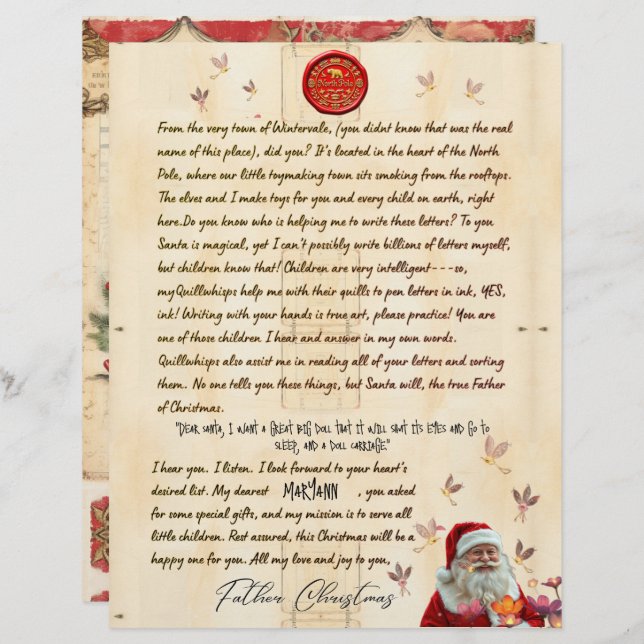 North Pole
From the very town of Wintervale, (you didnt know that was the real
name of this place), did you? It's located in the heart of the North
Pole, where our little toymaking town sits smoking from the rooftops.
The elves and I make toys for you and every child on earth, right
here.Do you know who is helping me to write these letters? To you
Santa is magical, yet I can't possibly write billions of letters myself,
but children know that! Children are very intelligent---so,
myQuillwhisps help me with their quills to pen letters in ink, YES,
ink! Writing with your hands is true art, please practice! You are
one of those children I hear and answer in my own words.
Quillwhisps also assist me in reading all of your letters and sorting
them. No one tells you these things, but Santa will, the true Father
of Christmas.
"Dear Santa, I want a great big doll that it will shut its eyes and go to
sleep, and a doll carriage."
I hear you. I listen. I look forward to your heart's
desired list. My dearest MARYANN , you asked
for some special gifts, and my mission is to serve all
little children. Rest assured, this Christmas will be a
happy one for you. All my love and joy to you,
Father Christmas